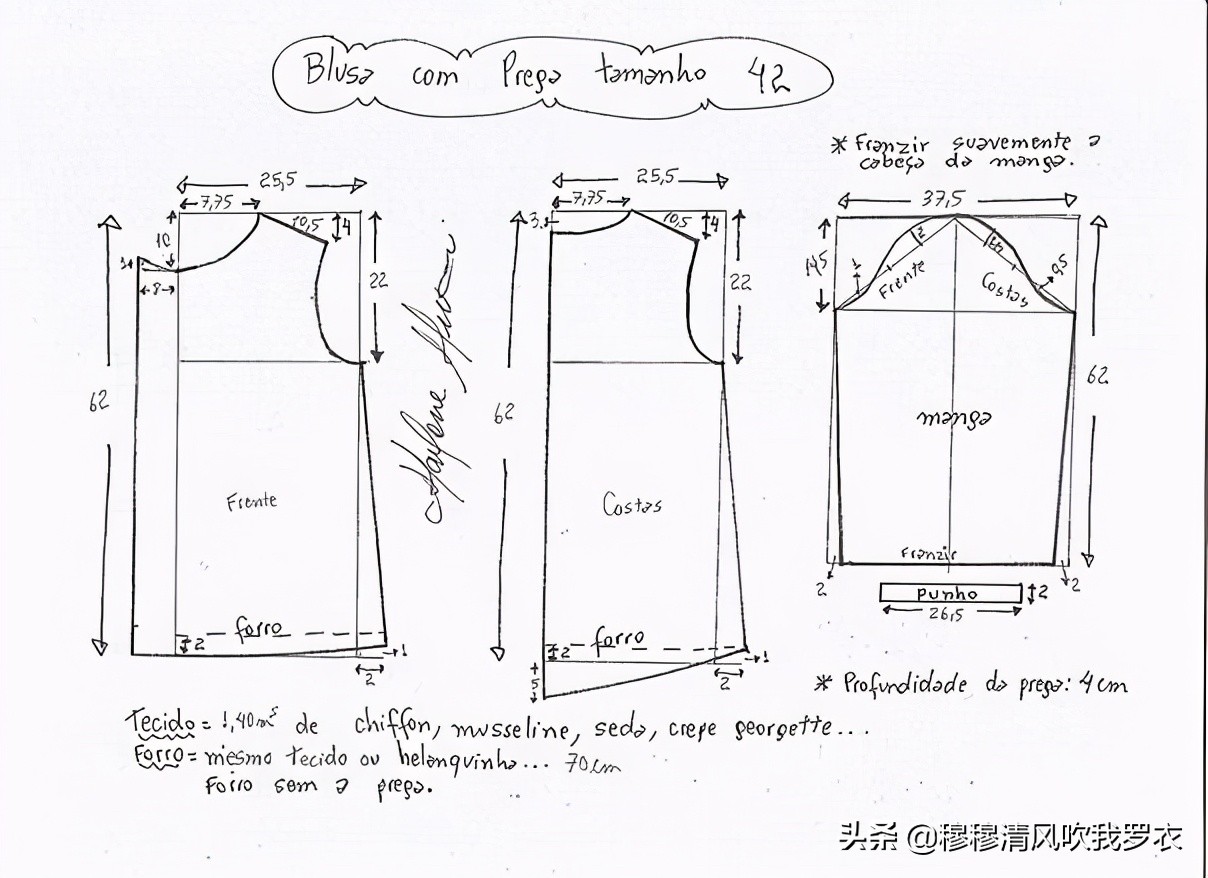 Blusa com Prega tamanho 42
* Franzir suavemente a
cabeça da manga.
25,5
7,75
10,5
4
10
1
8
22
62
Frente
forro
2
1
2
25,5
7,75
3
10,5
4
22
62
Costas
forro
2
5
1
2
37,5
14,5
1
2
Frente
Costas
0,5
62
manga
Franzir
2
2
Punho
2
26,5
* Profundidade da prega: 4 cm
Tecido = 1,40 mᵗˢ de chiffon, musseline, seda, crepe georgette...
Forro = mesmo tecido ou helanquinha... 70 cm
Forro sem a prega.
头条 @穆穆清风吹我罗衣